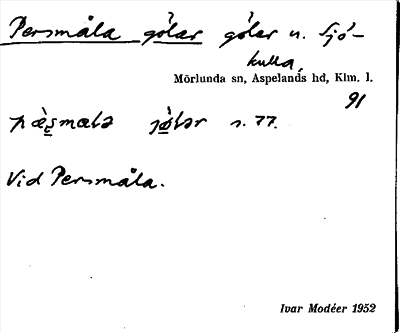 Persmåla gölar gölar n. Sjö-
kulla,
Mörlunda sn, Aspelands hd, Klm. l.
91
pæ̀smɑlə jø̀lər s. 77.
Vid Persmåla.
Ivar Modéer 1952